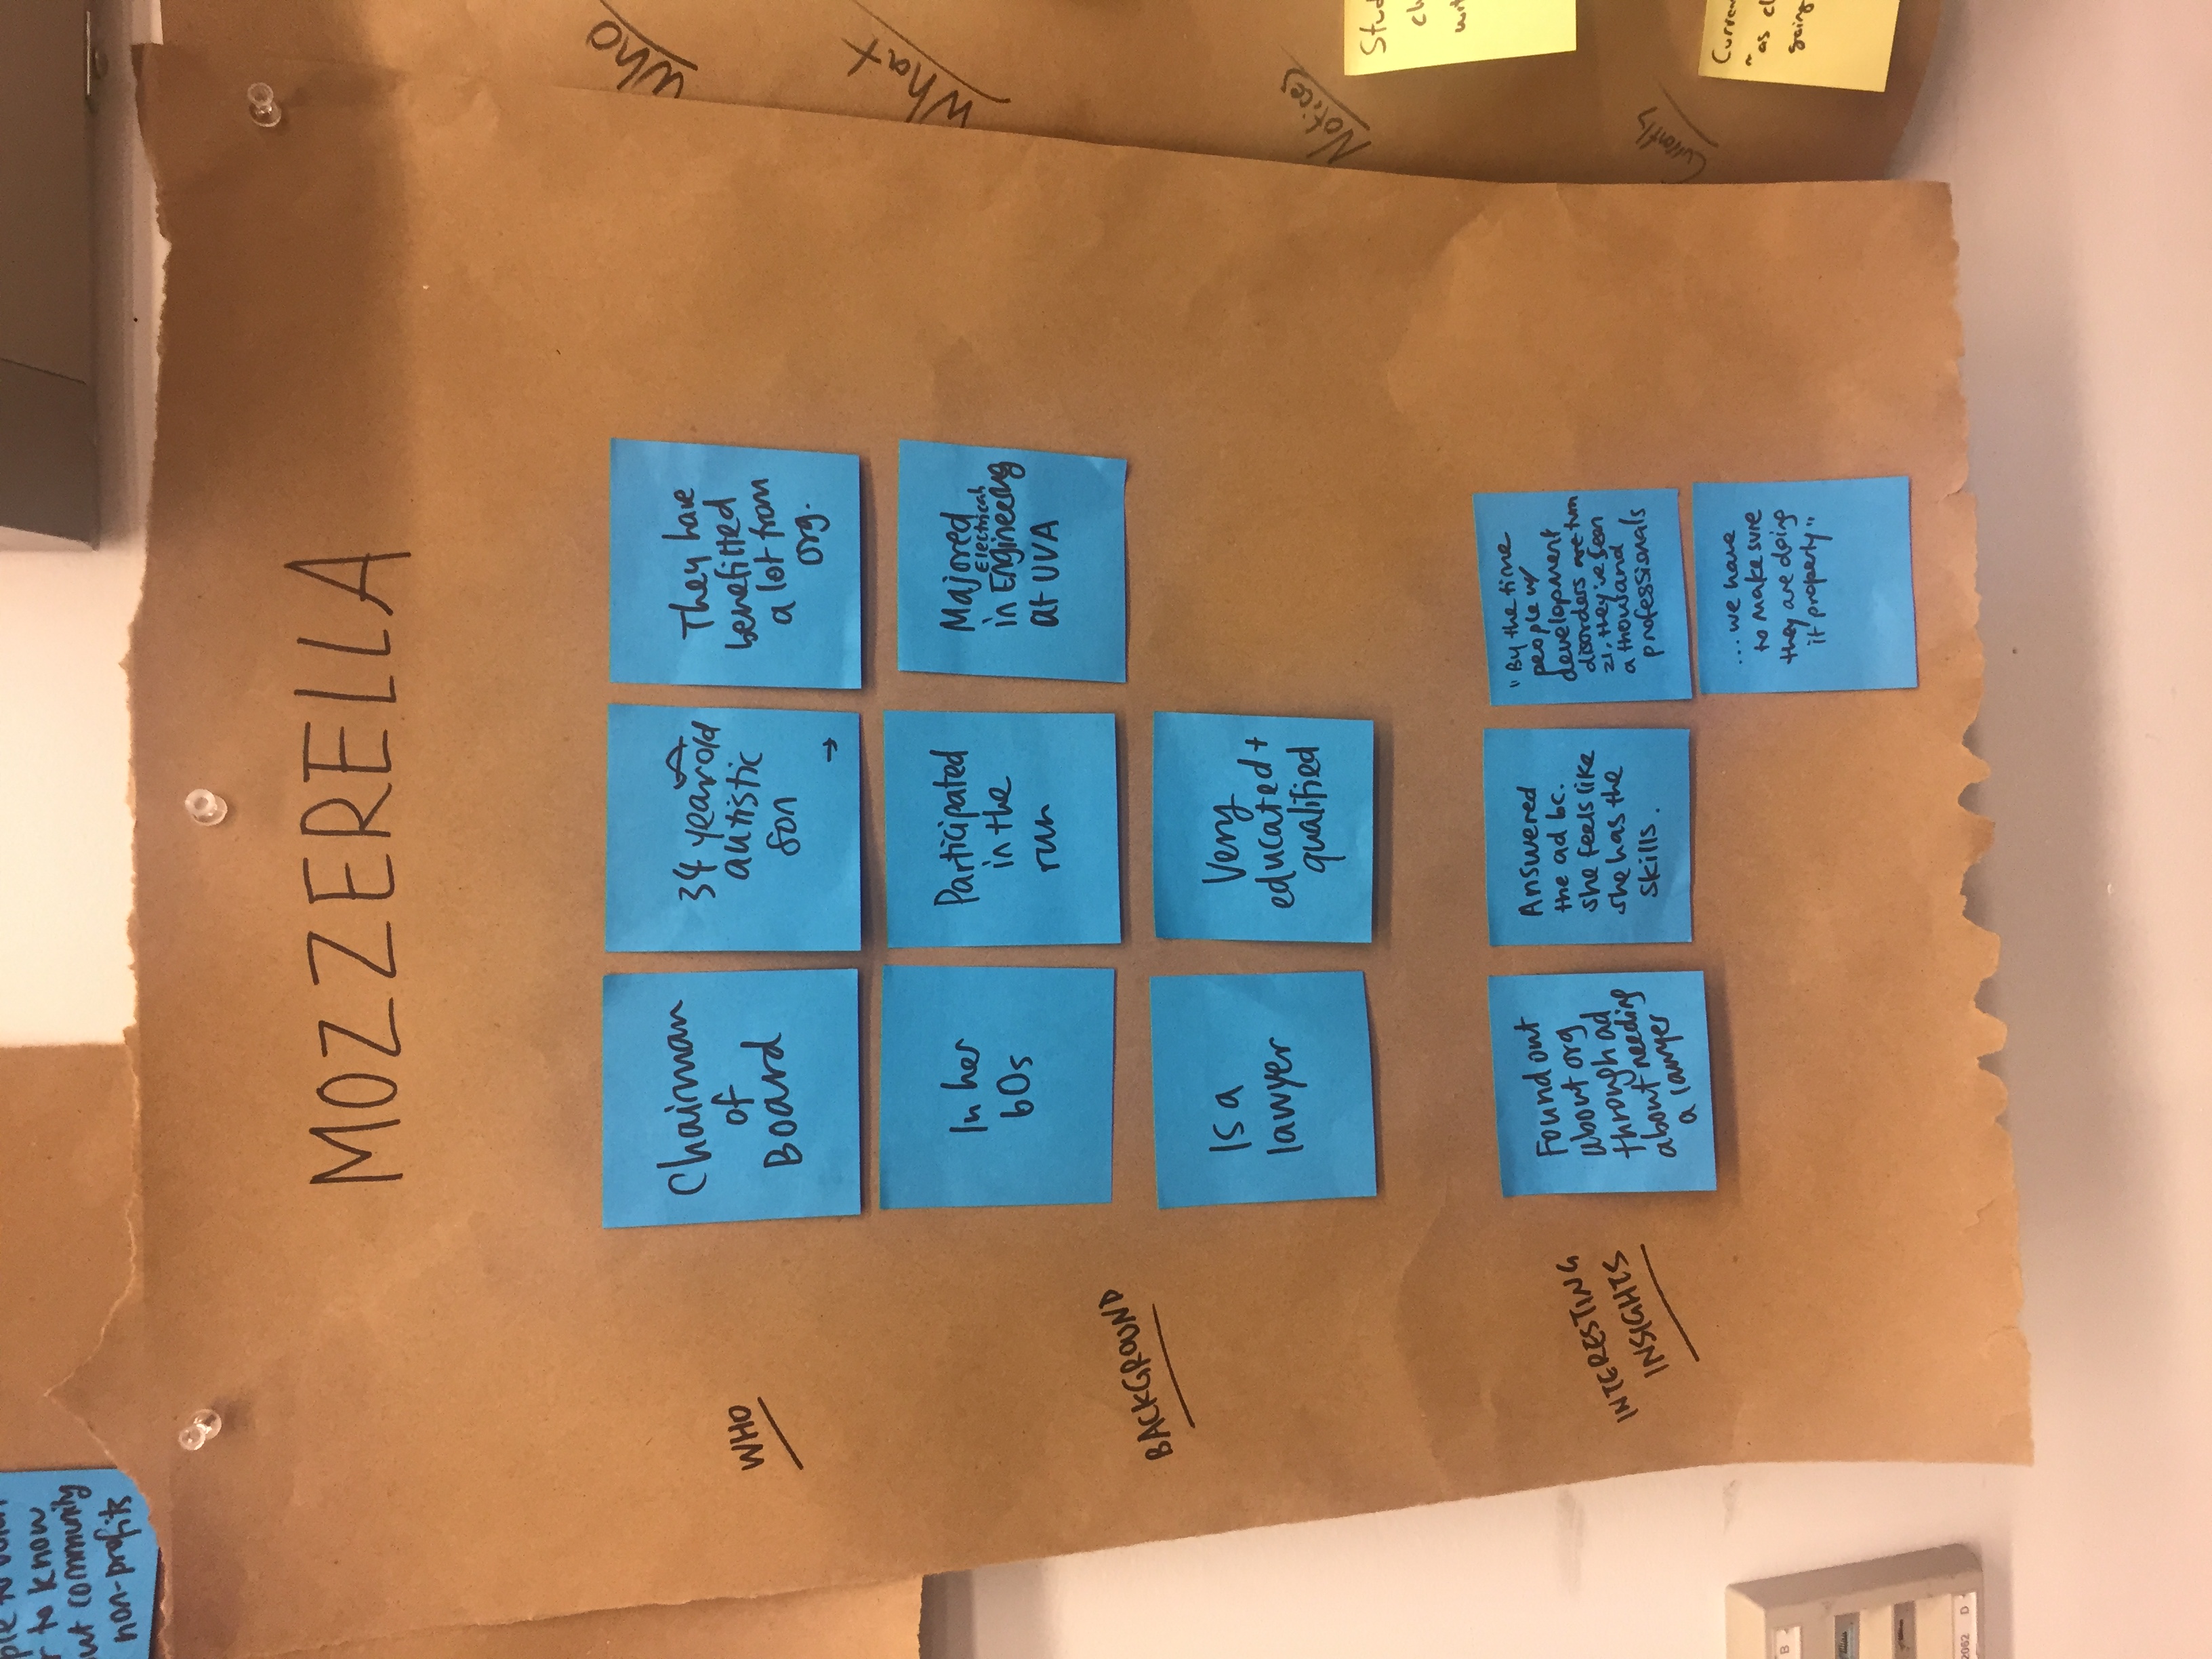 to know
community
non-profits
MOZZERELLA
WHO
Chairman
of
Board
34 year old
autistic
son
→
They have
benefitted
a lot from
org.
In her
60s
Participated
in the
run
Majored
Electrical
in Engineering
at UVA
BACKGROUND
Is a
lawyer
Very
educated +
qualified
INTERESTING
INSIGHTS
Found out
about org
through ad
about needing
a lawyer
Answered
the ad bc.
she feels like
she has the
skills.
"By the time
people w/
development
disorders are turn
21, they've seen
a thousand
professionals
...we have
to make sure
they are doing
it property"
Who
What
Notices
Currently
"as
going
B
2062 D